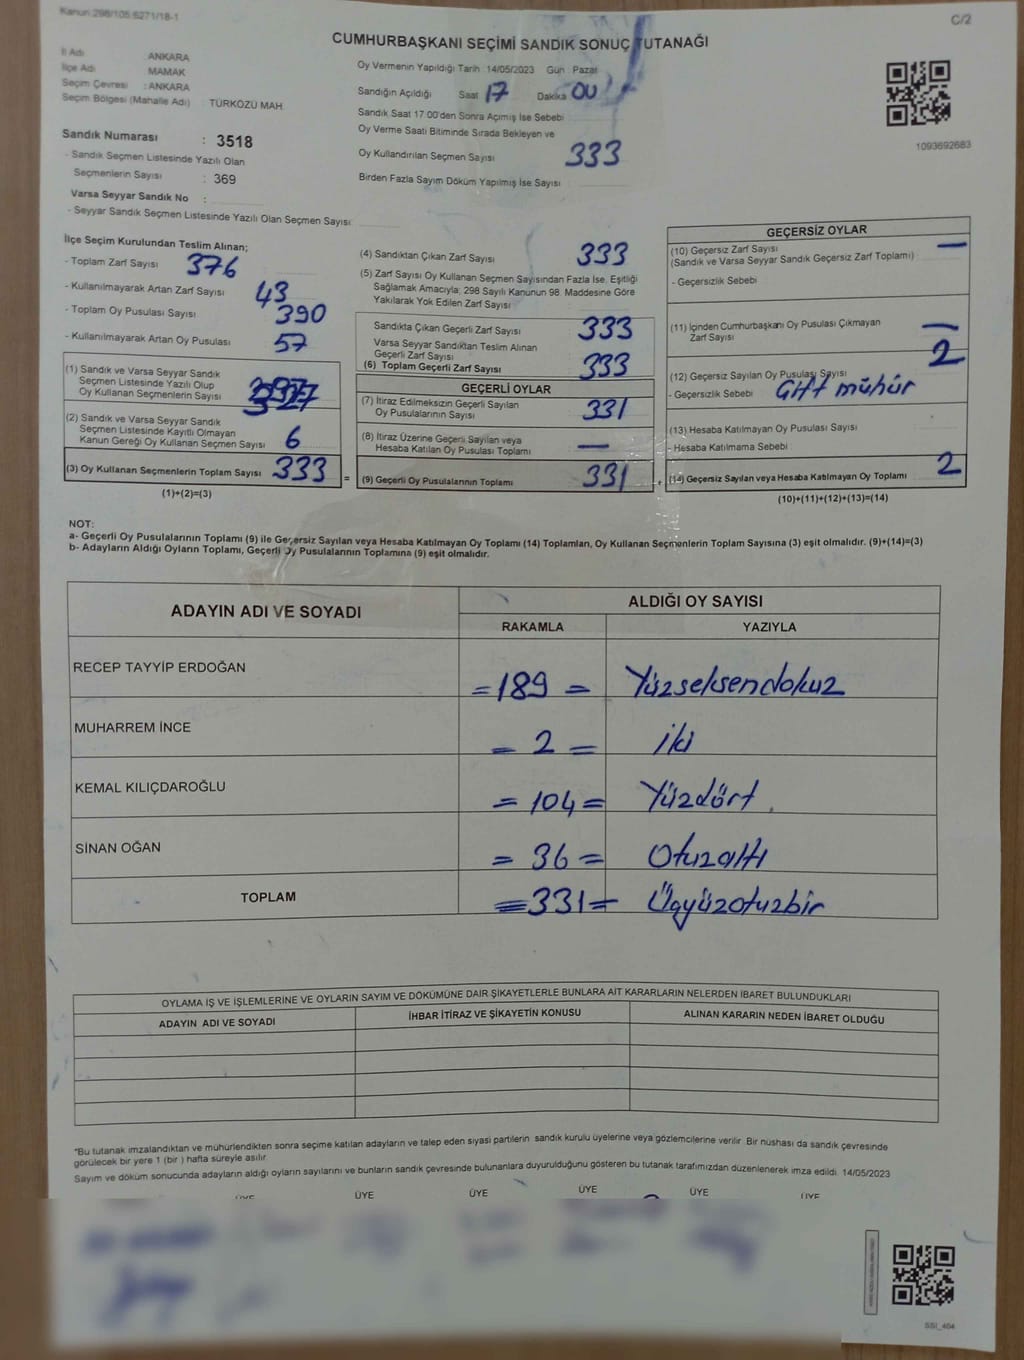 Kanun:298/105.6271/18-1
C/2
CUMHURBAŞKANI SEÇİMİ SANDIK SONUÇ TUTANAĞI
İl Adı ANKARA
İlçe Adı MAMAK
Seçim Çevresi : ANKARA
Seçim Bölgesi (Mahalle Adı) : TÜRKÖZÜ MAH.
Sandık Numarası : 3518
- Sandık Seçmen Listesinde Yazılı Olan
Seçmenlerin Sayısı : 369
Varsa Seyyar Sandık No :
- Seyyar Sandık Seçmen Listesinde Yazılı Olan Seçmen Sayısı
Oy Vermenin Yapıldığı Tarih :14/05/2023 Gün : Pazar
Sandığın Açıldığı Saat 17 Dakika 00
Sandık Saat 17:00'den Sonra Açımış İse Sebebi
Oy Verme Saati Bitiminde Sırada Bekleyen ve
Oy Kullandırılan Seçmen Sayısı 333
Birden Fazla Sayım Döküm Yapılmış İse Sayısı
1093692683
İlçe Seçim Kurulundan Teslim Alınan;
- Toplam Zarf Sayısı 376
- Kullanılmayarak Artan Zarf Sayısı 43
- Toplam Oy Pusulası Sayısı 390
- Kullanılmayarak Artan Oy Pusulası 57
(1) Sandık ve Varsa Seyyar Sandık
Seçmen Listesinde Yazılı Olup
Oy Kullanan Seçmenlerin Sayısı
(2) Sandık ve Varsa Seyyar Sandık
Seçmen Listesinde Kayıtlı Olmayan
Kanun Gereği Oy Kullanan Seçmen Sayısı 6
(3) Oy Kullanan Seçmenlerin Toplam Sayısı 333 =
(1)+(2)=(3)
(4) Sandıktan Çıkan Zarf Sayısı 333
(5) Zarf Sayısı Oy Kullanan Seçmen Sayısından Fazla İse, Eşitliği
Sağlamak Amacıyla; 298 Sayılı Kanunun 98. Maddesine Göre
Yakılarak Yok Edilen Zarf Sayısı :
Sandıkta Çıkan Geçerli Zarf Sayısı : 333
Varsa Seyyar Sandıktan Teslim Alınan
Geçerli Zarf Sayısı
(6) Toplam Geçerli Zarf Sayısı : 333
GEÇERLİ OYLAR
(7) İtiraz Edilmeksizin Geçerli Sayılan
Oy Pusulalarının Sayısı : 331
(8) İtiraz Üzerine Geçerli Sayılan veya
Hesaba Katılan Oy Pusulası Toplamı : —
(9) Geçerli Oy Pusulalarının Toplamı : 331
GEÇERSİZ OYLAR
(10) Geçersiz Zarf Sayısı —
(Sandık ve Varsa Seyyar Sandık Geçersiz Zarf Toplamı)
- Geçersizlik Sebebi
(11) İçinden Cumhurbaşkanı Oy Pusulası Çıkmayan
Zarf Sayısı —
(12) Geçersiz Sayılan Oy Pusulası Sayısı 2
- Geçersizlik Sebebi : Çift mühür
(13) Hesaba Katılmayan Oy Pusulası Sayısı
- Hesaba Katılmama Sebebi :
(14) Geçersiz Sayılan veya Hesaba Katılmayan Oy Toplamı 2
(10)+(11)+(12)+(13)=(14)
NOT:
a- Geçerli Oy Pusulalarının Toplamı (9) ile Geçersiz Sayılan veya Hesaba Katılmayan Oy Toplamı (14) Toplamları, Oy Kullanan Seçmenlerin Toplam Sayısına (3) eşit olmalıdır. (9)+(14)=(3)
b- Adayların Aldığı Oyların Toplamı, Geçerli Oy Pusulalarının Toplamına (9) eşit olmalıdır.
ADAYIN ADI VE SOYADI
ALDIĞI OY SAYISI
RAKAMLA YAZIYLA
RECEP TAYYİP ERDOĞAN =189= Yüzseksendokuz
MUHARREM İNCE =2= iki
KEMAL KILIÇDAROĞLU =104= Yüzdört
SİNAN OĞAN =36= Otuzaltı
TOPLAM =331= Üçyüzotuzbir
OYLAMA İŞ VE İŞLEMLERİNE VE OYLARIN SAYIM VE DÖKÜMÜNE DAİR ŞİKAYETLERLE BUNLARA AİT KARARLARIN NELERDEN İBARET BULUNDUKLARI
ADAYIN ADI VE SOYADI İHBAR İTİRAZ VE ŞİKAYETİN KONUSU ALINAN KARARIN NEDEN İBARET OLDUĞU
*Bu tutanak imzalandıktan ve mühürlendikten sonra seçime katılan adayların ve talep eden siyasi partilerin sandık kurulu üyelerine veya gözlemcilerine verilir. Bir nüshası da sandık çevresinde
görülecek bir yere 1 (bir ) hafta süreyle asılır.
Sayım ve döküm sonucunda adayların aldığı oyların sayılarını ve bunların sandık çevresinde bulunanlara duyurulduğunu gösteren bu tutanak tarafımızdan düzenlenerek imza edildi. 14/05/2023
ÜYE ÜYE ÜYE ÜYE ÜYE ÜYE
SSI_464